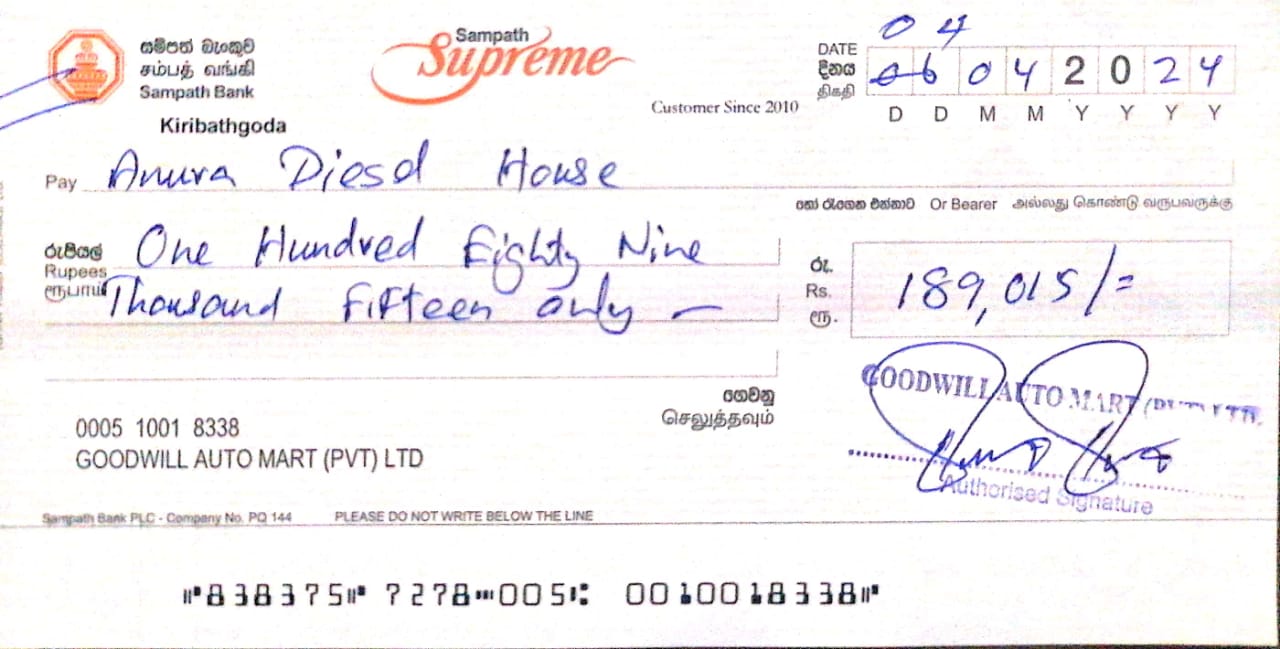 සම්පත් බැංකුව
சம்பத் வங்கி
Sampath Bank
Kiribathgoda
Sampath
Supreme
Customer Since 2010
04
DATE
දිනය
திகதி
06 04 2024
D D M M Y Y Y Y
Pay Anura Diesel House
හෝ රැගෙන එන්නාට Or Bearer அல்லது கொண்டு வருபவருக்கு
රුපියල්
Rupees
ரூபாய்
One Hundred Eighty Nine
Thousand Fifteen only —
රු.
Rs.
ரூ.
189,015/=
ගෙවනු
செலுத்தவும்
GOODWILL AUTO MART (PVT) LTD.
Authorised Signature
0005 1001 8338
GOODWILL AUTO MART (PVT) LTD
Sampath Bank PLC - Company No. PQ 144 PLEASE DO NOT WRITE BELOW THE LINE
⑈838375⑈ 7278⑉005⑆ 0010018338⑈